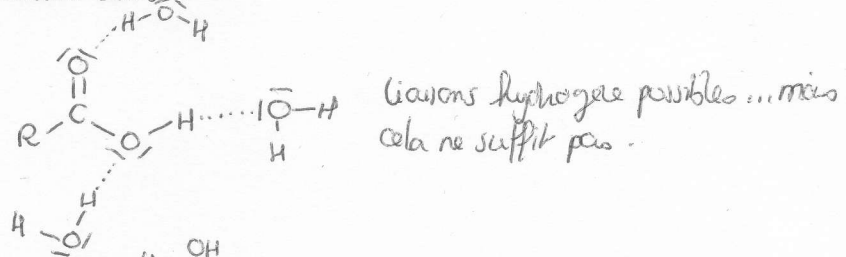 H-O-H
O
C
R
O-H
IO-H
H
H
H
O
OH
liaisons hydrogène possibles...mais
cela ne suffit pas.